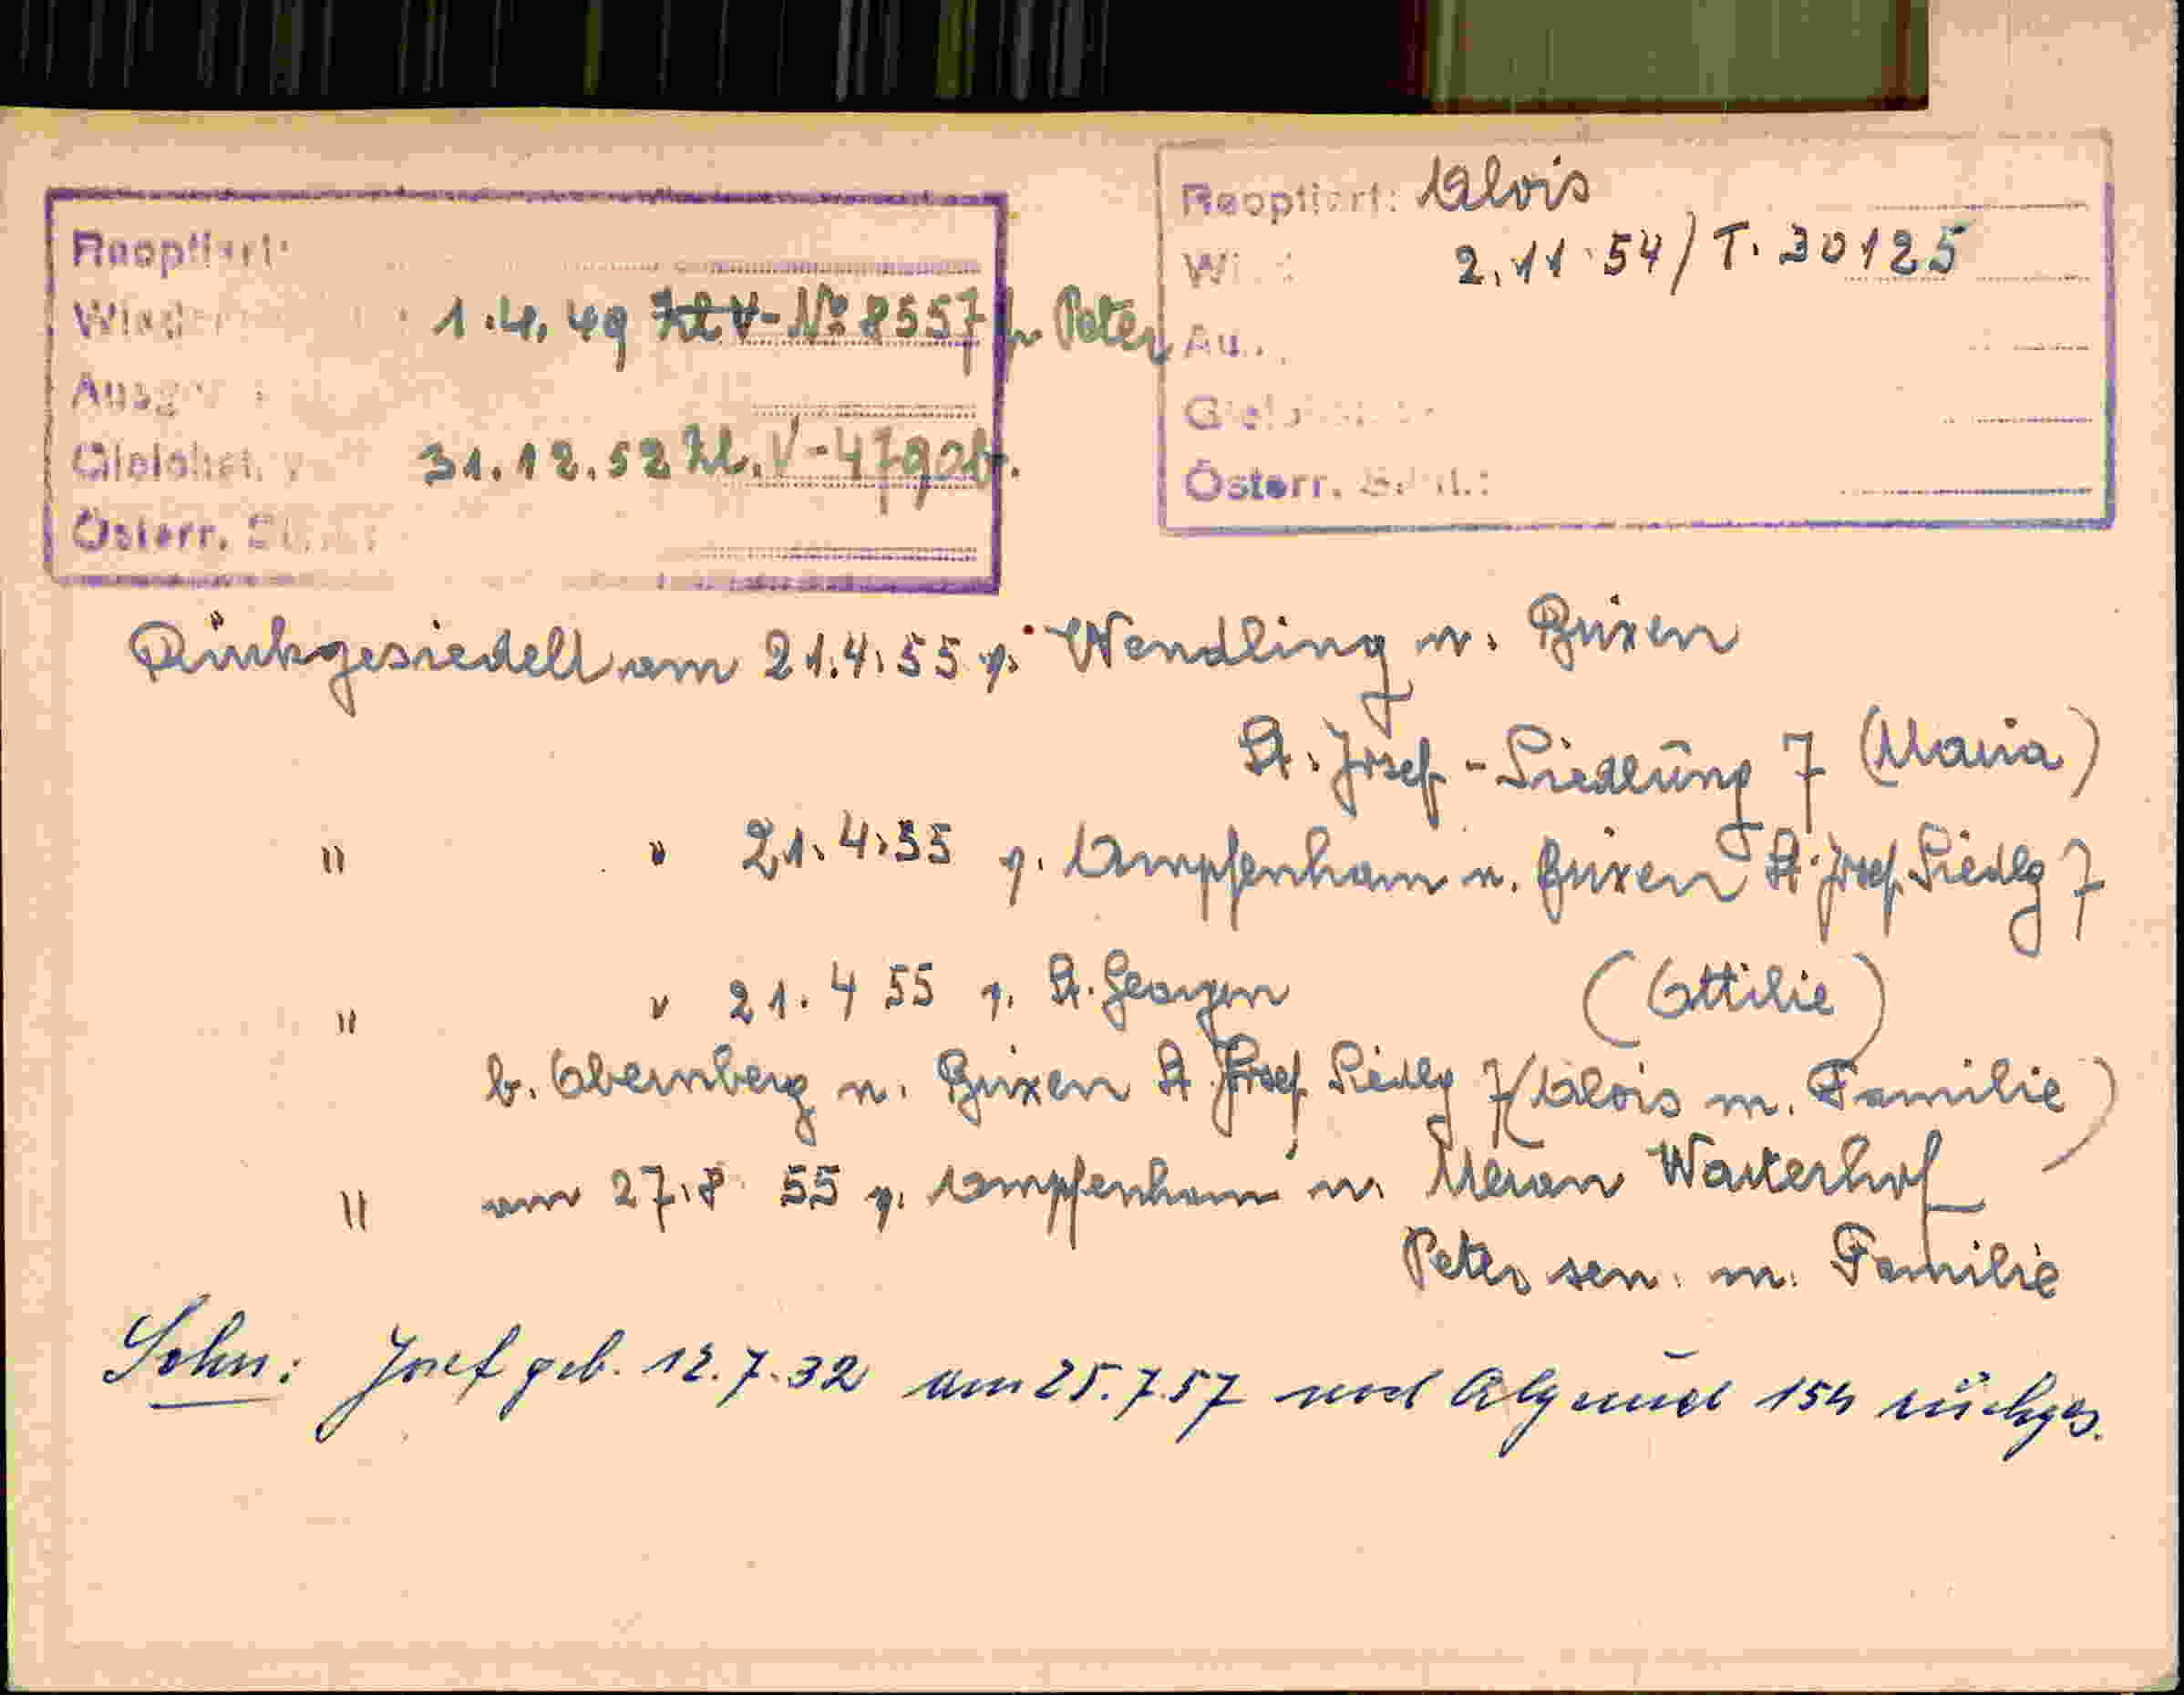 Reoptiert:
1.4.49 Zl V-No 8557 f. Peter
31.12.52 Zl. V-4790
Österr.
Reoptiert: Alois
2.11.54/T. 30125
Österr.
Rückgesiedelt am 21.4.55 v. Wendling n. Brixen
St. Josef-Siedlung 7 (Maria)
" " 21.4.55 v. Ampfenham n. Brixen St. Josef Siedlg 7
" " 21.4 55 v. St. Georgen (Ottilie)
b. Obernberg n. Brixen St. Josef Siedlg 7 (Alois m. Familie)
" am 27.8 55 v. Ampfenham n. Meran
Peter sen. m. Familie
Sohn: Josef geb. 12.7.32 am 25.7.57 nach Algund 154 rückges.